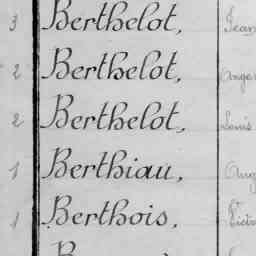 3 Berthelot, Jean
2 Berthelot, Ange
2 Berthelot, Louis
1 Berthiau, Aug
1 Berthois, Victo